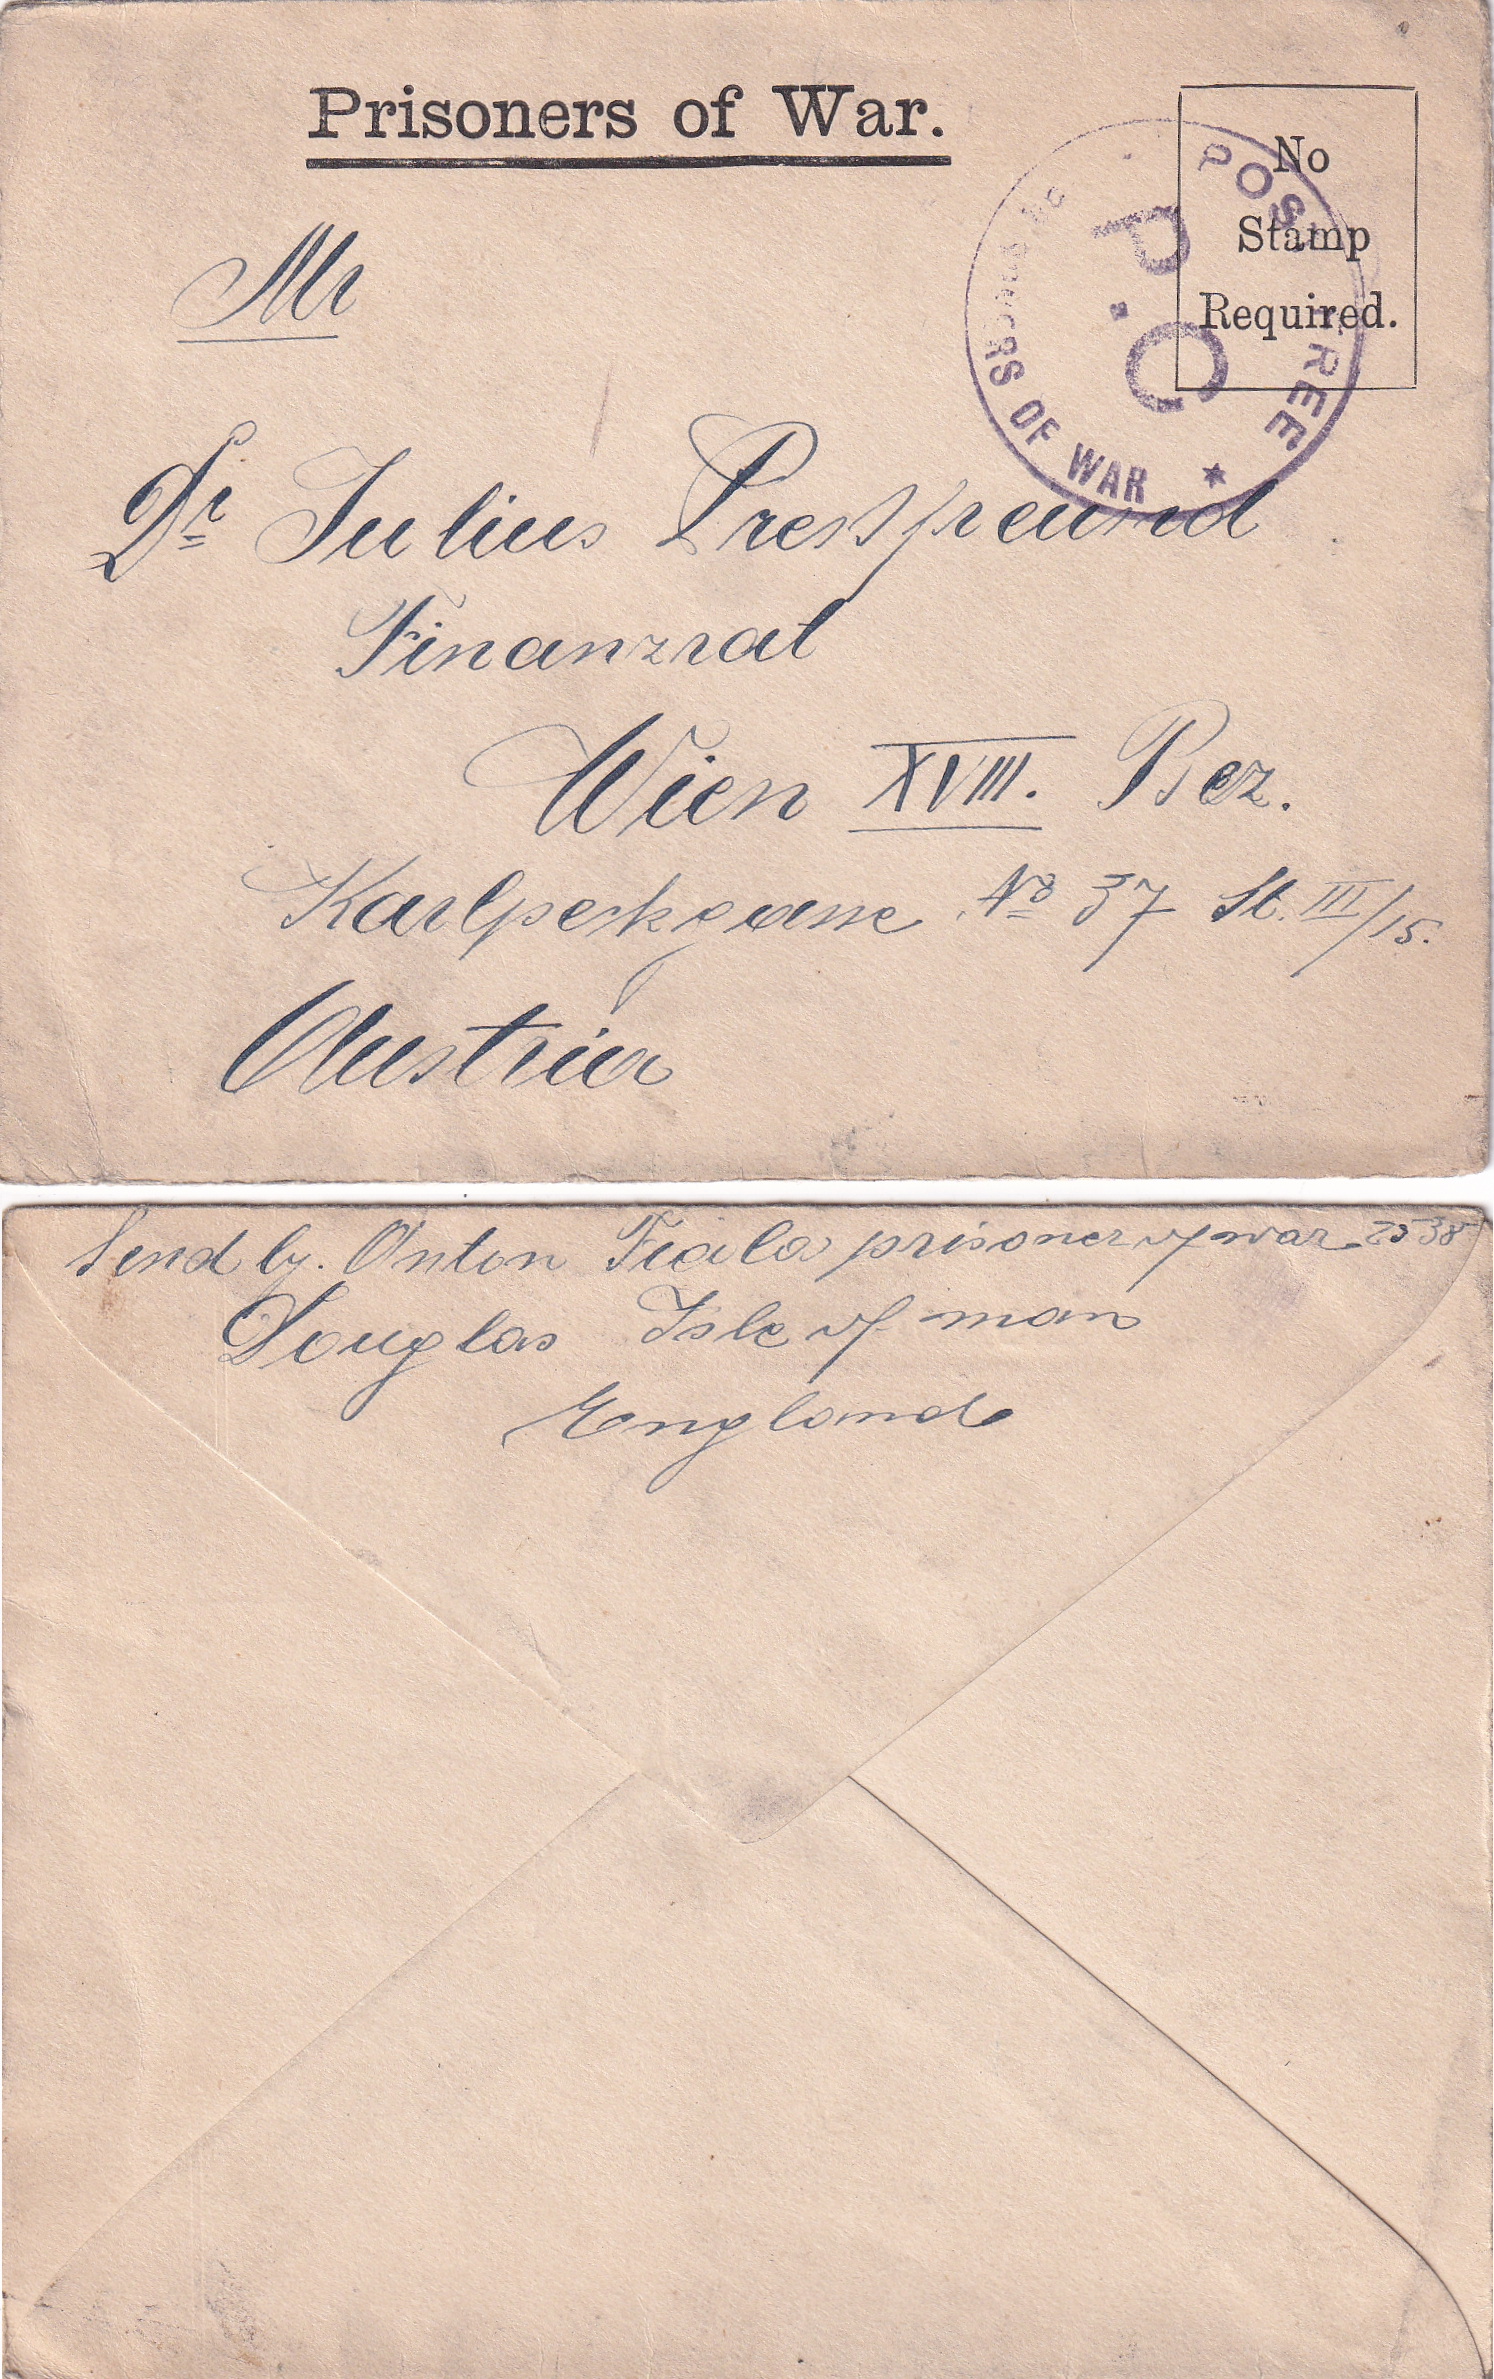 Prisoners of War.
No
Stamp
Required.
POST FREE
P.C.
PRISONERS OF WAR
Mr
Dr Julius Pressfreund
Finanzrat
Wien XVIII. Bez.
Karlpeckgasse No 37 St. III/15.
Austria
Send by. Anton Fiala prisoner of war 2538
Douglas Isle of man
England